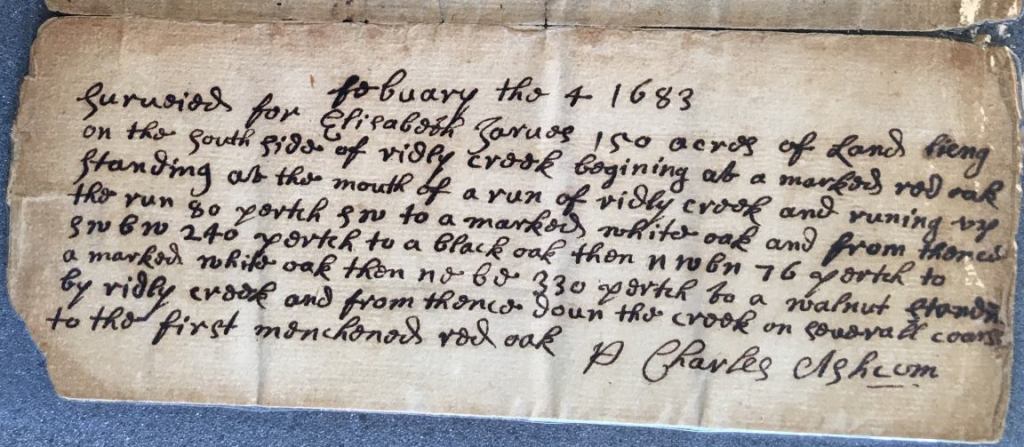 febuary the 4 1683
Surveied for Elisabeth Jarves 150 acres of Land lieng
on the south side of ridly creek begining at a marked red oak
standing at the mouth of a run of ridly creek and runing vp
the run 80 pertch sw to a marked white oak and from thence
sw b w 240 pertch to a black oak then n w b n 76 pertch to
a marked white oak then ne b e 330 pertch to a walnut
by ridly creek and from thence doun the creek on severall
to the first menchened red oak
P Charles Ashcom